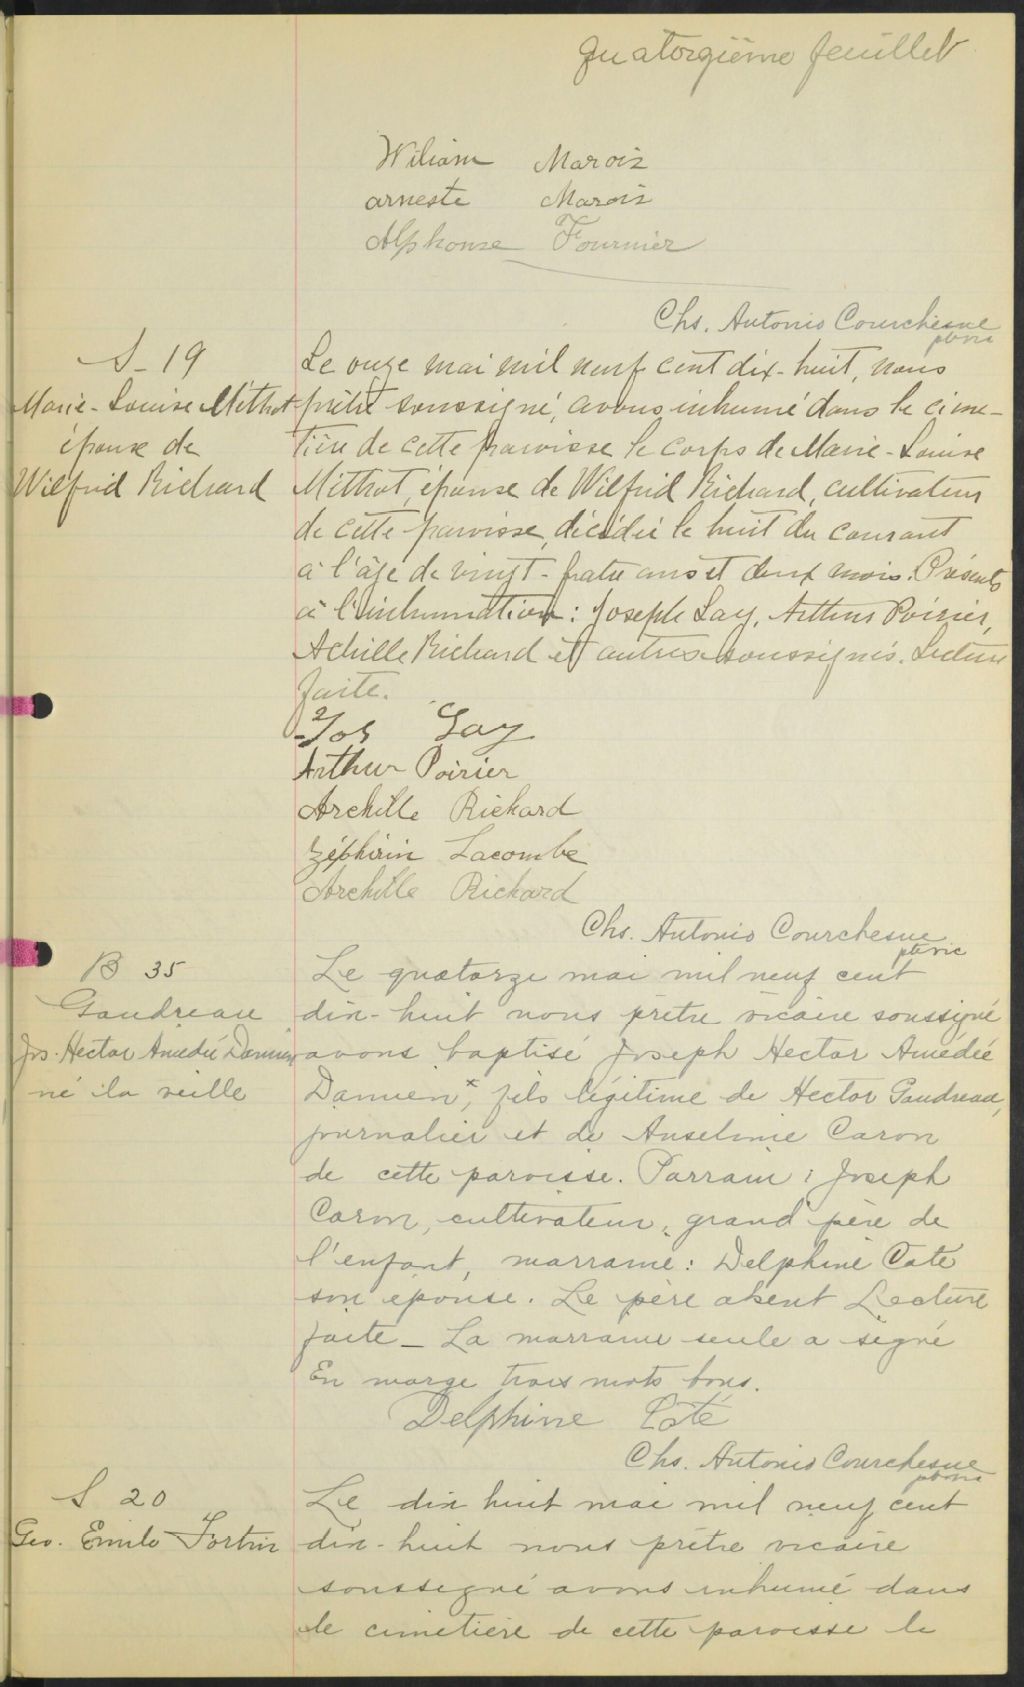 quatorzième feuillet
Wiliam Marois
arneste Marois
Alphonse Fournier
Chs. Antonio Courchesne
ptre vic
S-19
Marie-Louise Methot
épouse de
Wilfrid Richard
Le onze mai mil neuf cent dix-huit, nous
prêtre soussigné, avons inhumé dans le cime-
tière de cette paroisse le corps de Marie-Louise
Methot, épouse de Wilfrid Richard, cultivateur
de cette paroisse, décédée le huit du courant
à l'âge de vingt-quatre ans et deux mois. Présents
à l'inhumation: Joseph Gay, Arthur Poirier,
Achille Richard et autres soussignés. Lecture
faite.
Jos Gay
Arthur Poirier
Archille Richard
Zéphirin Lacombe
Archille Richard
Chs. Antonio Courchesne
ptre vic
B 35
Gaudreau
Jos. Hector Amédé Damien
né la veille
Le quatorze mai mil neuf cent
dix-huit nous prêtre vicaire soussigné
avons baptisé Joseph Hector Amédée
Damien x, fils légitime de Hector Gaudreau,
journalier et de Anselmie Caron
de cette paroisse. Parrain: Joseph
Caron, cultivateur, grand père de
l'enfant, marraine: Delphine Coté
son épouse. Le père absent Lecture
faite _ La marraine seule a signé
En marge trois mots bons.
Delphine Coté
Chs. Antonio Courchesne
ptre vic
S 20
Geo. Emile Fortin
Le dix huit mai mil neuf cent
dix-huit nous prêtre vicaire
soussigné avons inhumé dans
le cimetière de cette paroisse le